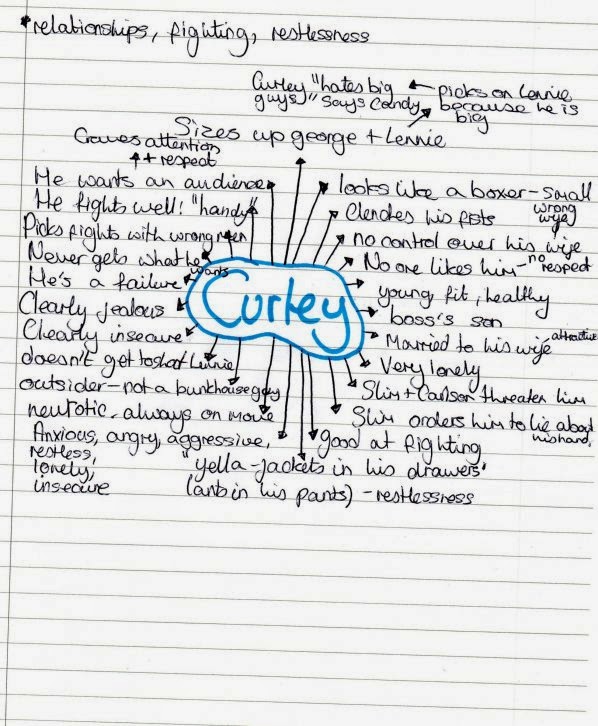 *relationships, fighting, restlessness
Curley "hates big
guys" says Candy
picks on Lennie
because he is
big
Sizes up george + Lennie
Craves attention
+ respect
He wants an audience
He fights well: "handy"
Picks fights with wrong men
Never gets what he
wants
He's a failure
Clearly jealous
Clearly insecure
doesn't get to shoot Lennie
outsider - not a bunkhouse guy
neurotic - always on move
Anxious, angry, aggressive,
restless,
lonely,
insecure
Curley
looks like a boxer - small
Clenches his fists
wrong
wife
no control over his wife
No one likes him - no
respect
young, fit, healthy
boss's son
Married to his wife
attractive
Very lonely
Slim + Carlson threaten him
Slim orders him to lie about
his hand
good at fighting
"yella-jackets in his drawers"
(ants in his pants) - restlessness